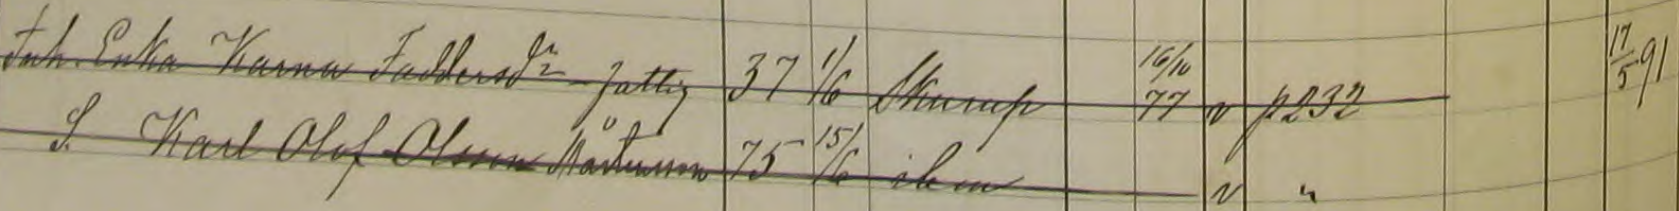 Inh. Enka Karna Faddersdr fattig 37 1/6 Skurup 16/10 77 v p232 17/5 91
S. Karl Olof Olsson Mårtensson 75 15/6 ibm v "